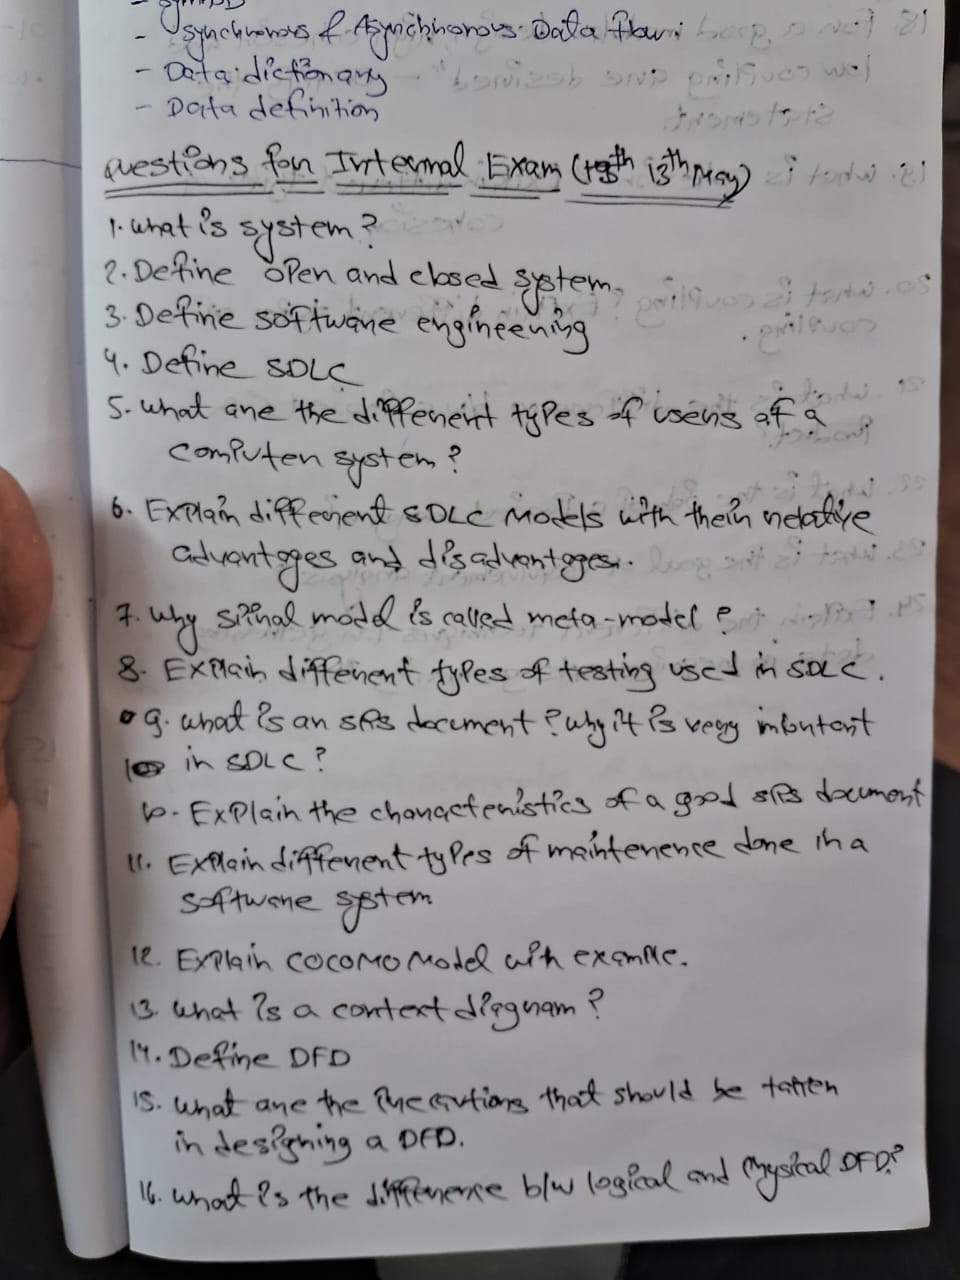 - Symbol
- Synchronous & Asynchronous Data flow
- Data dictionary
- Data definition
Questions for Internal Exam (13th May)
1. What is system?
2. Define open and closed system.
3. Define software engineering
4. Define SDLC
5. What are the different types of users of a
computer system?
6. Explain different SDLC Models with their relative
advantages and disadvantages.
7. Why spiral model is called meta-model?
8. Explain different types of testing used in SDLC.
9. What is an SRS document? Why it is very imbortant
in SDLC?
10. Explain the characteristics of a good SRS document
11. Explain different types of maintenence done in a
software system
12. Explain COCOMO Model with example.
13. What is a context diagram?
14. Define DFD
15. What are the precautions that should be taken
in designing a DFD.
16. What is the difference b/w logical and Physical DFD?